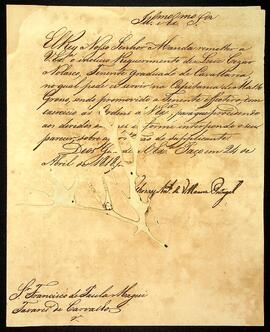 Illmo e Exmo Snr
El Rey Nosso Senhor Manda remetter a
V. Exa o incluso Requerimento de Luiz
Nolasco, Tenente Graduado de Cavallaria,
no qual pede servir na Capitania de Matto
Grosso, sendo promovido a Tenente Effectivo, com
exercicio as Ordens de V. Exa, para que procedendo
aos devidos informe interpondo o seu
parecer sobre do supplicante.
Deos Gde a V. Exa Paço em 24 de
Abril de 1818
Thomaz Anto de Villanova Portugal
Sr Francisco de Paula Maggi
Tavares de Carvalho